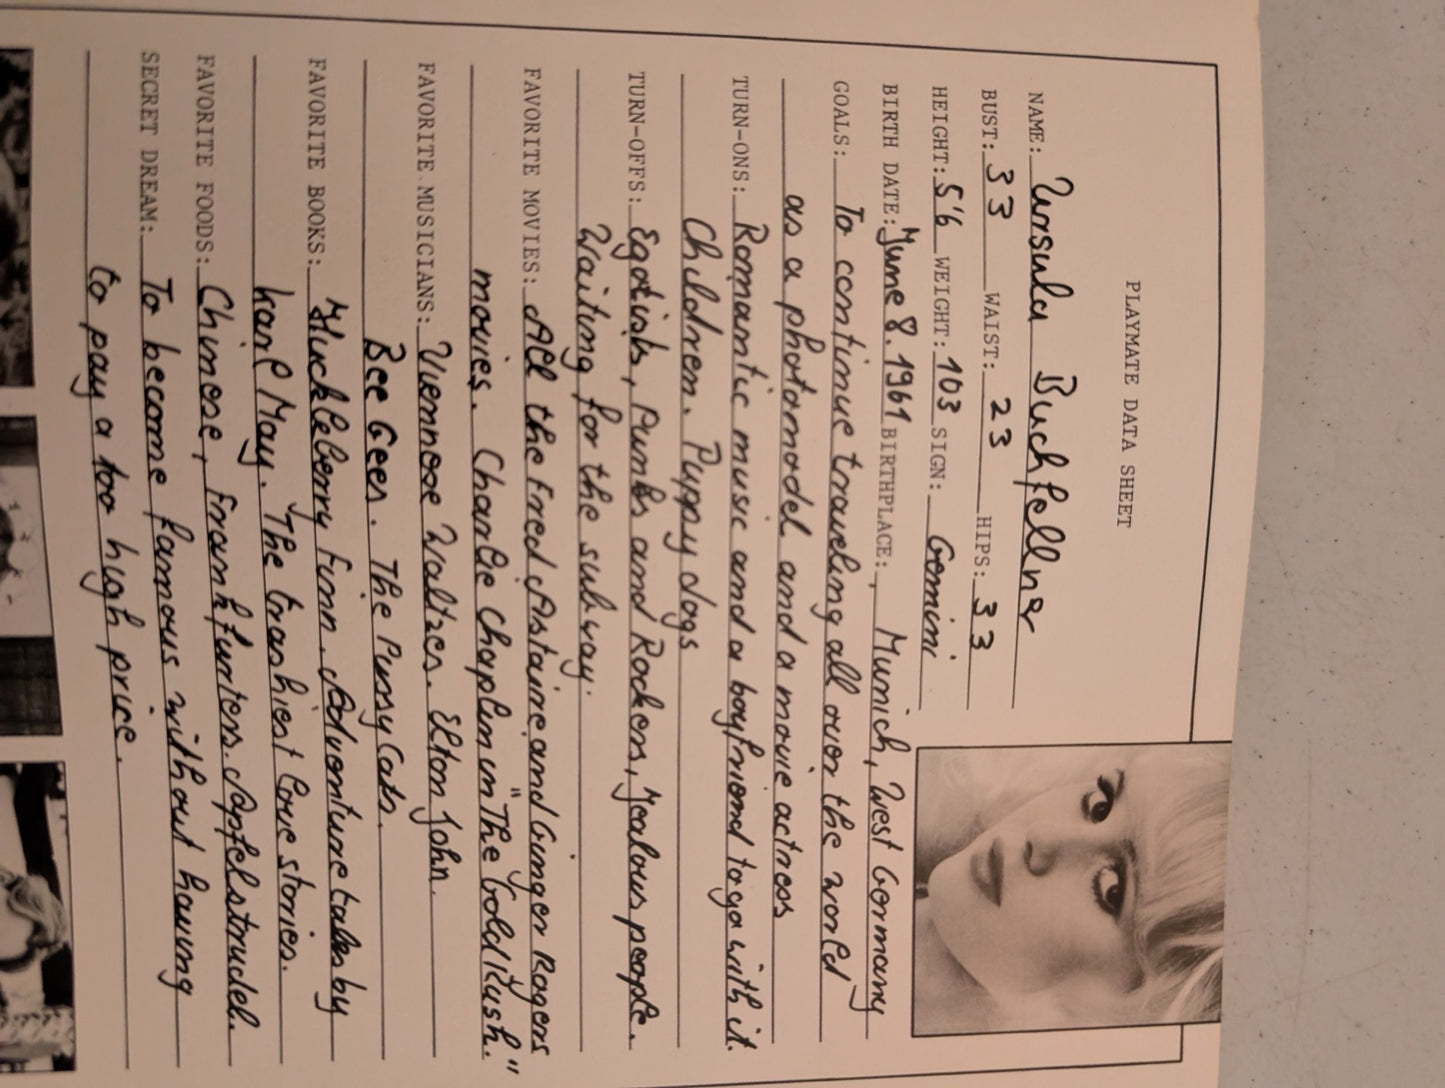 PLAYMATE DATA SHEET
NAME: Ursula Buchfellner
BUST: 33 WAIST: 23 HIPS: 33
HEIGHT: 5'6 WEIGHT: 103 SIGN: Gemini
BIRTH DATE: June 8. 1961 BIRTHPLACE: Munich, West Germany
GOALS: To continue traveling all over the world
as a photomodel and a movie actress
TURN-ONS: Romantic music and a boyfriend to go with it.
Children. Puppy dogs
TURN-OFFS: Egotists, Punks and Rockers, Jealous people.
Waiting for the subway.
FAVORITE MOVIES: All the Fred Astaire and Ginger Rogers
movies. Charlie Chaplin in "The Gold Rush."
FAVORITE MUSICIANS: Viennese Waltzes. Elton John.
Bee Gees. The Pussy Cats.
FAVORITE BOOKS: Huckleberry Finn. Adventure tales by
Karl May. The tranhient love stories.
FAVORITE FOODS: Chinese, Frankfurters. Apfelstrudel.
SECRET DREAM: To become famous without having
to pay a too high price.